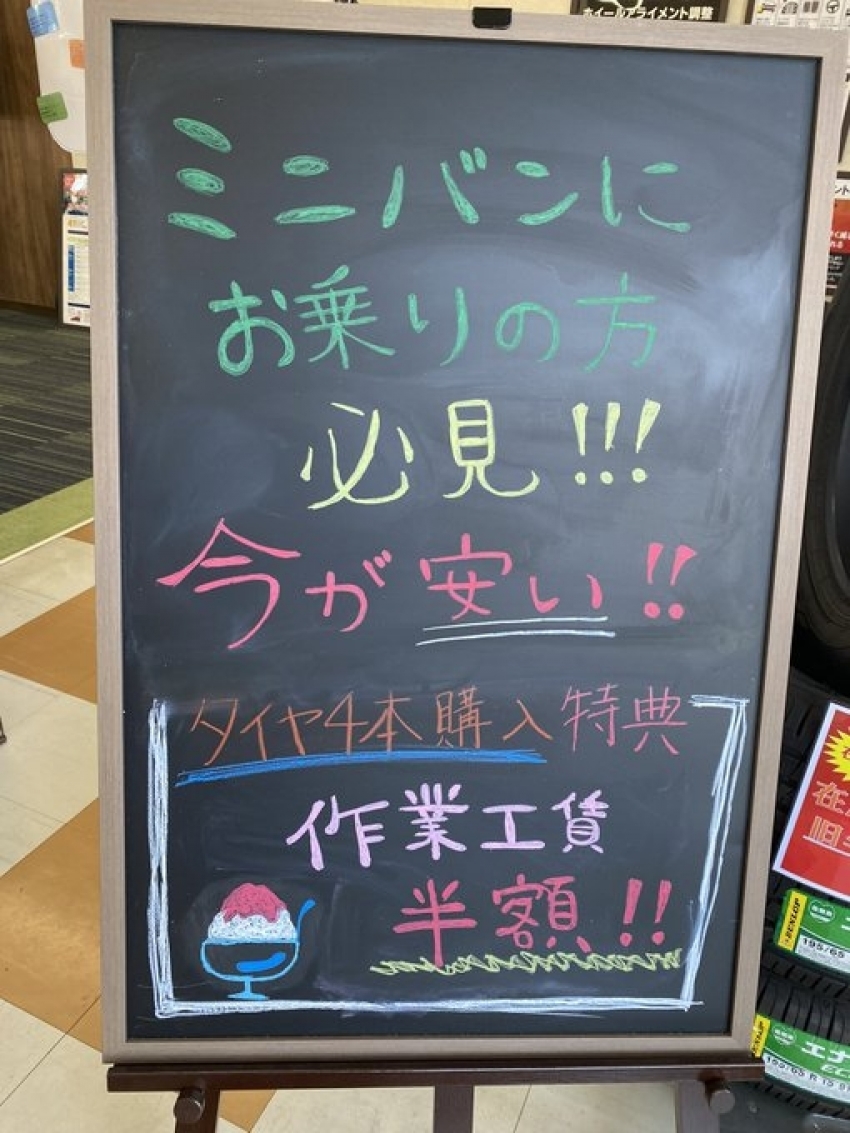 ホイールアライメント調整
ミニバンに
お乗りの方
必見!!!
今が安い!!
タイヤ4本購入特典
作業工賃
半額!!
DUNLOP
195/65
エナ
155/65 R 15